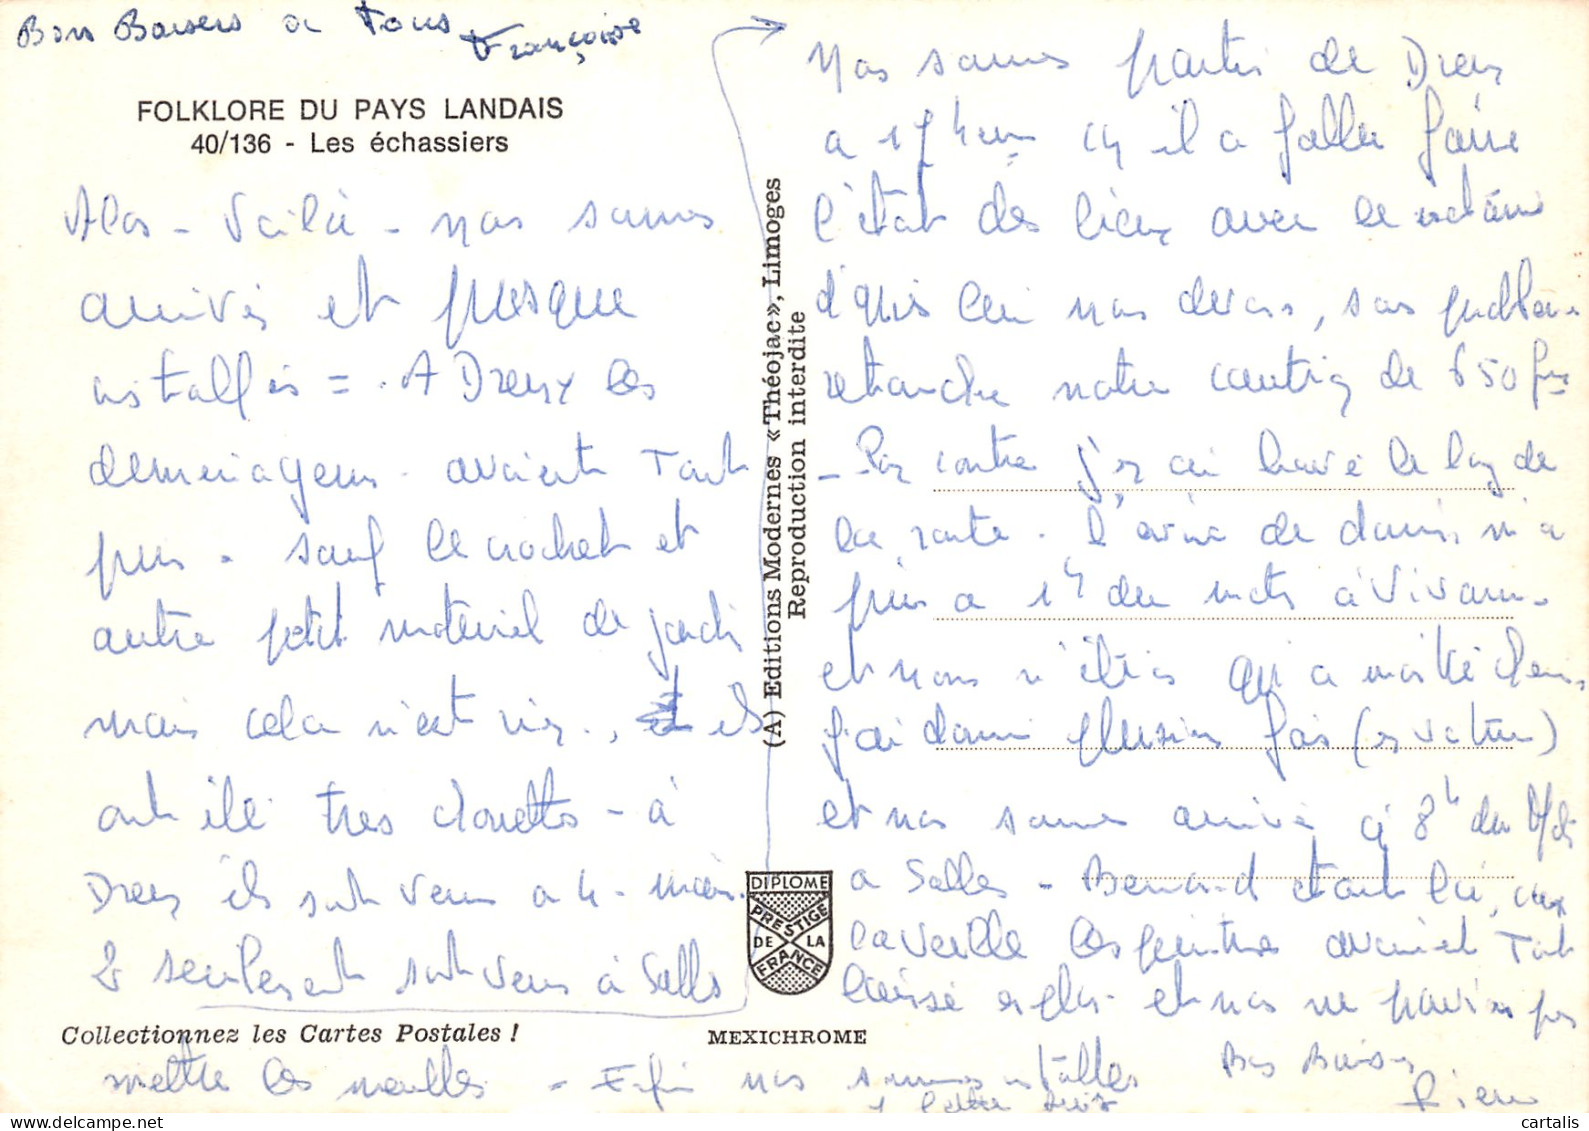 Bons Baisers a Tous
Françoise
FOLKLORE DU PAYS LANDAIS
40/136 - Les échassiers
Alors - Voilà - nous sommes
arrivés et presque
installés = . A Dreux les
demenageurs - avaient Tout
pris - sauf le crochet et
autre petit matériel de jardin
mais cela n'est rien , ils
ont été très chouettes - à
Dreux ils sont venus a 4 -
2 seulement sont venus à Salles
Nous sommes partis de Dreux
a 17h car il a fallu faire
l'état des lieux avec le
d'après lui nous devons, sans problème
retoucher notre caution de 650 frs
- Par contre j'y ai lavé le long de
la route - l'envie de dormir m'a
pris a 1h du matin à Vivonne -
et nous n'étions qu'a moitié chemin,
j'ai dormi plusieurs fois (en voiture)
et nous sommes arrivés à 8h du Matin
a Salles - Bernard etant là,
la veille les peintres avaient Tout
laissé en plan - et nous ne pouvions pas
mettre les meubles - Enfin nous sommes installés
Bons Baisers
Pierre
1 lettre suit
(A) Editions Modernes «Théojac», Limoges
Reproduction interdite
DIPLOME
PRESTIGE
DE LA
FRANCE
Collectionnez les Cartes Postales !
MEXICHROME
cartalis